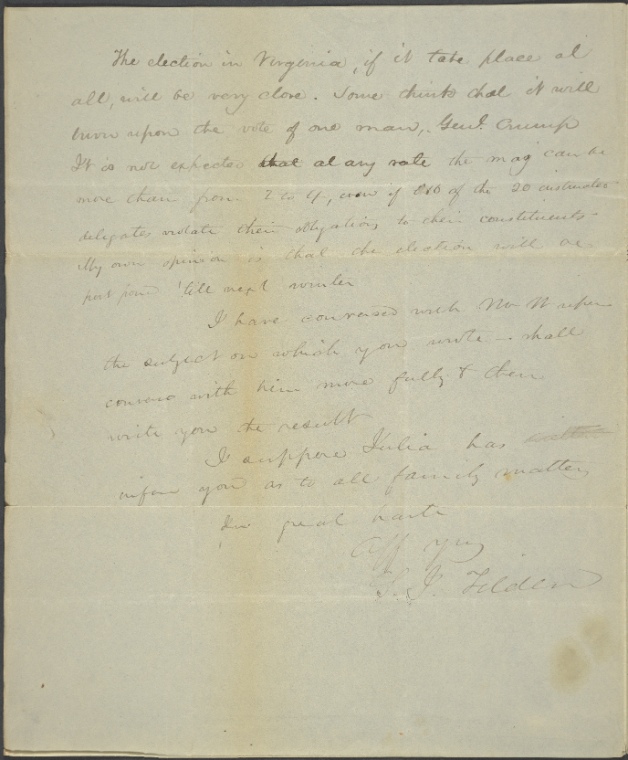 The election in Virginia, if it take place at
all, will be very close. Some think that it will
turn upon the vote of one man, Genl. Crump
It is not expected that at any rate the maj can be
more than from 2 to 4, even if of the 20 instructed
delegates violate their obligations to their constituents.
My own opinion is that the election will be
postponed 'till next winter
I have conversed with Mr W upon
the subject on which you wrote – shall
converse with him more fully & then
write you the result
I suppose Julia has
you as to all family matters
In great haste
Aff yrs
S. J. Tilden